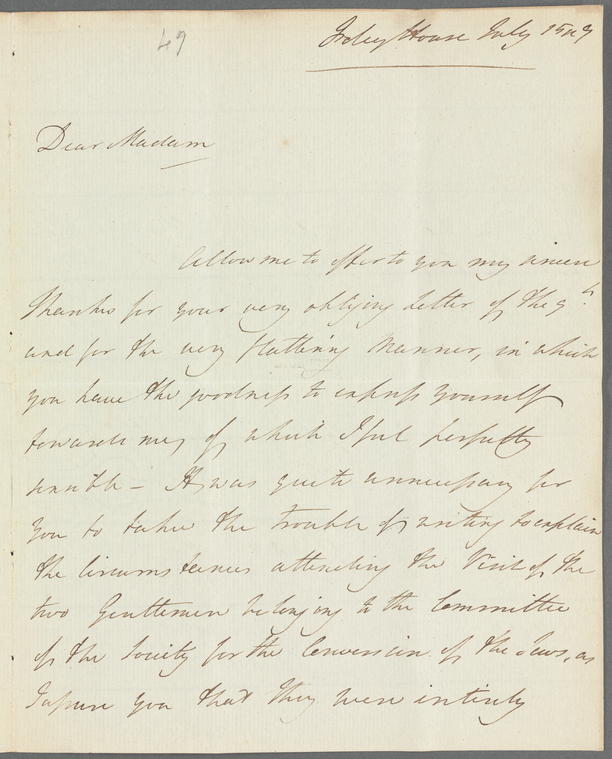 49
House July 15th
Dear Madam
Allow me to offer to you my sincere
Thanks for your very obliging Letter of the 9th
and for the very flattering Manner, in which
you have the goodness to express yourself
towards me, of which I feel perfectly
sensible – It was quite unnecessary for
you to take the trouble of writing to explain
the Circumstances attending the Visit of the
two Gentlemen belonging to the Committee
of the Society for the Conversion of the Jews, as
I assure you that they were entirely